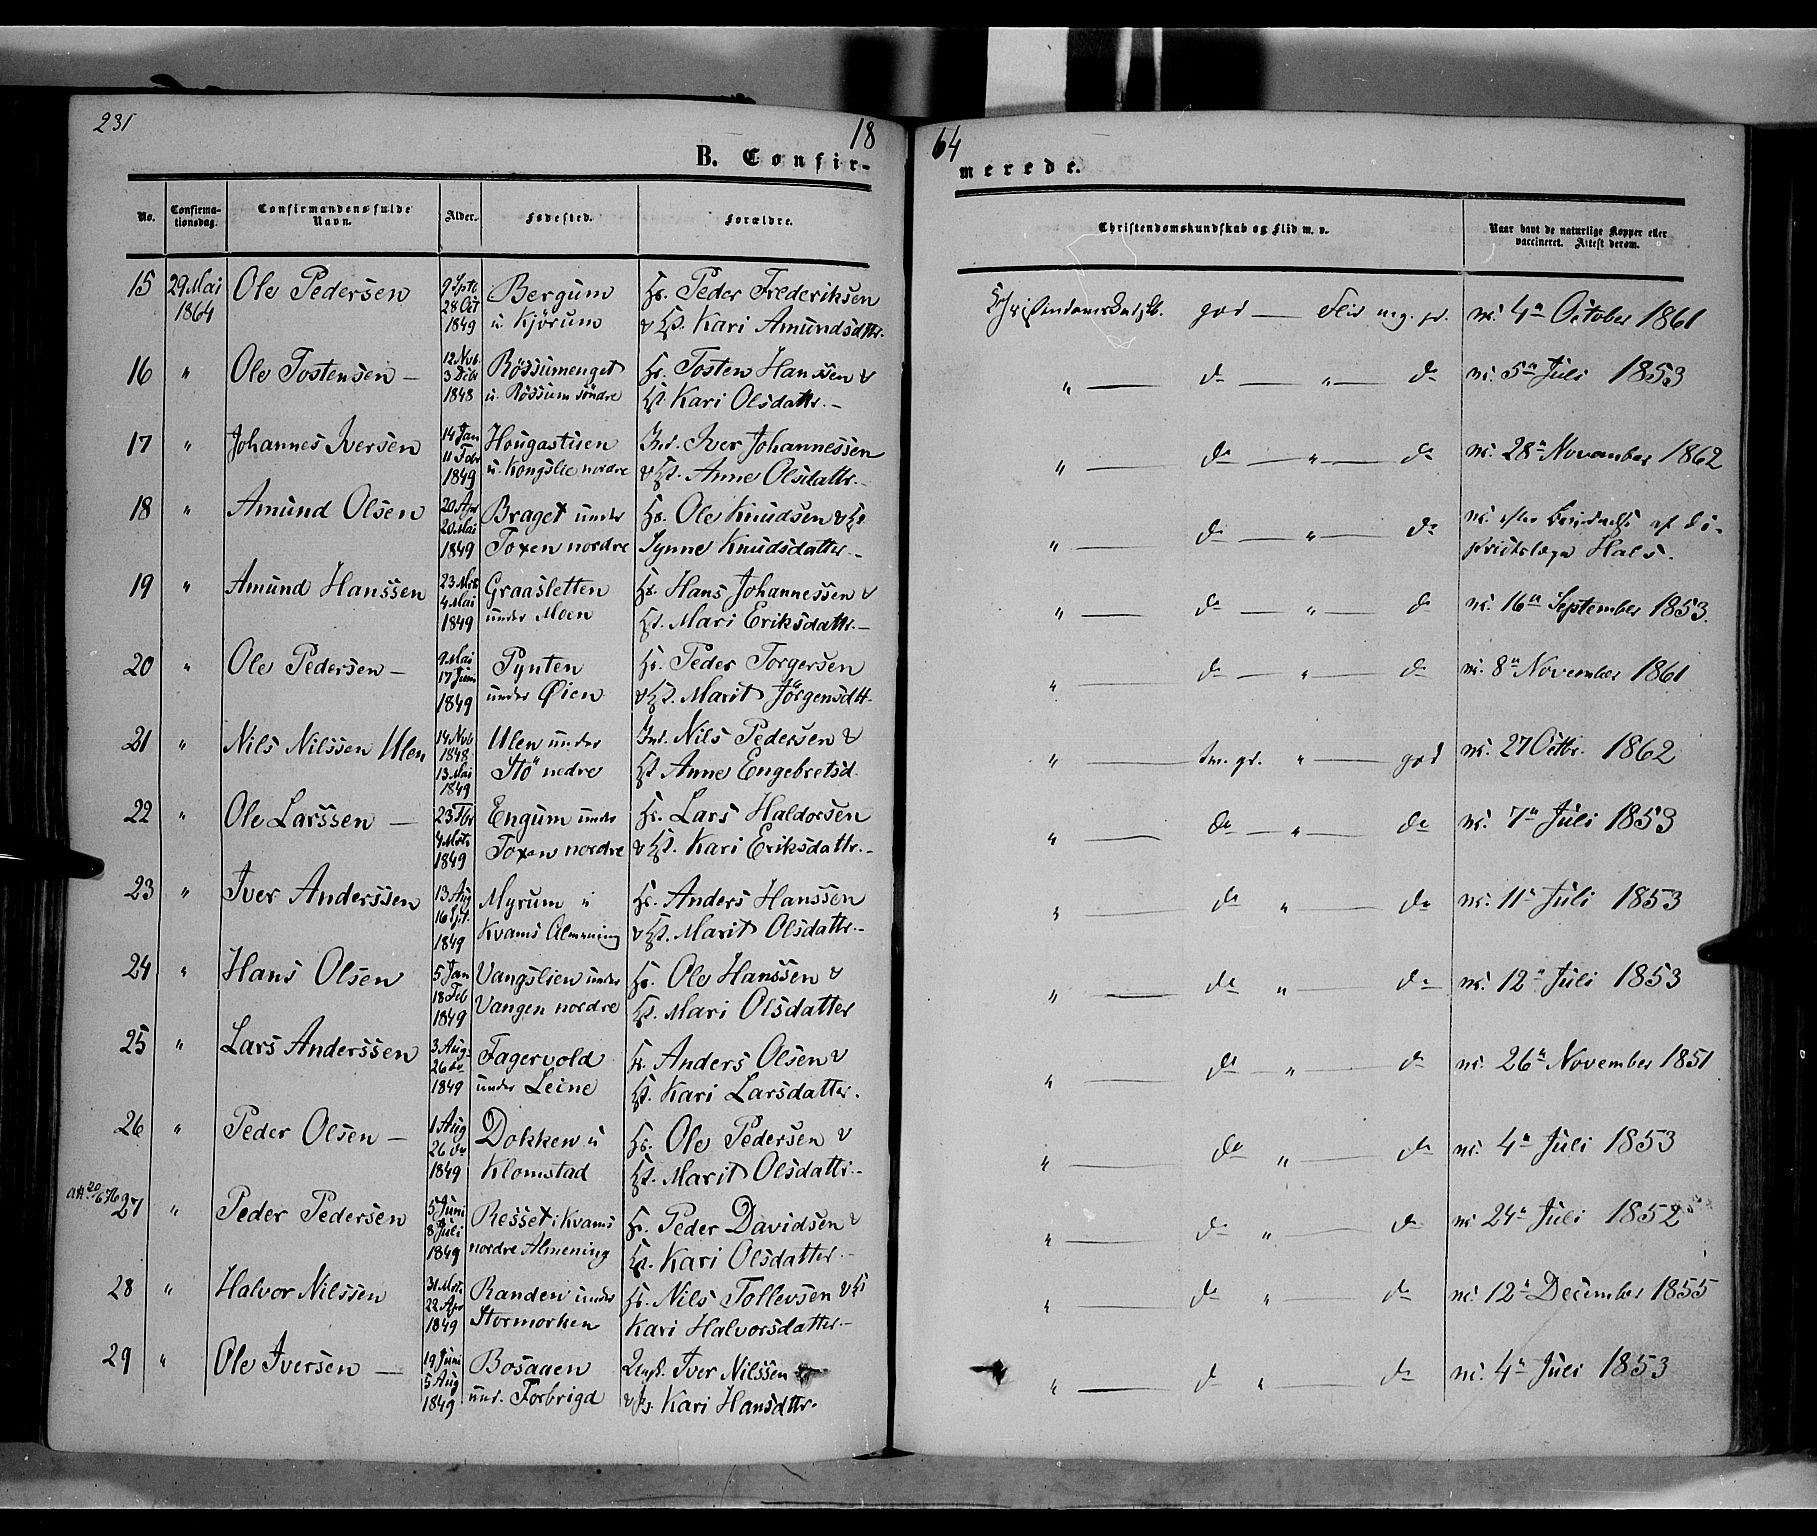 231
18
64
B. Confir-
merede.
No.
Confirma-
tionsdag.
Confirmandens fulde
Navn.
Alder.
Fødested.
Forældre.
Christendomskundskab og Flid m. v.
Naar havt de naturlige Kopper eller
vaccineret. Attest derom.
15 29 Mai 1864 Ole Pedersen 9 Septb 28 Oct 1849 Bergum u. Kjörum Hr. Peder Frederiksen & Kari Amundsdttr. god — Flid mg. gd. vc. 4de October 1861
16 " Ole Tostensen — 12 Nvb. 3 Dcb 1848 Rössumenget u. Rössum söndre Tosten Hanssen & Kari Olsdattr. — " — do — " — do vc. 5te Juli 1853
17 " Johannes Iversen 14 Jan 11 Febr 1849 Hougastuen u. Kongslie nordre Ind. Iver Johannessen & Anne Olsdattr. — " — do — " — do vc. 28de November 1862
18 " Amund Olsen 20 Apr 20 Mai 1849 Braget under Toxen nordre Ole Knudsen & Synne Knudsdatter — " — do — " — do vc. af Di- Hals.
19 " Amund Hanssen 23 Mrts 4 Mai 1849 Graasletten under Moen Hans Johannessen & Mari Eriksdattr. — " — do — " — do vc. 16de September 1853.
20 " Ole Pedersen — 9 Mai 17 Juni 1849 Pynten under Øien Peder Torgersen & Marit Jörgensdtt. " — do — " — do vc. 8de November 1861
21 " Nils Nilssen Ulen 14 Nvb 1848 13 Mai 1849 Ulen under Stö nedre Ind. Nils Pedersen & Anne Engebretsd. " — tm. gd. " — god vc. 27 Octbr. 1862
22 " Ole Larssen — 23 Fbr 4 Mrts 1849 Engum under Toxen nordre Lars Haldorsen & Kari Eriksdattr. — " — do — " — do vc. 7de Juli 1853
23 " Iver Anderssen 13 Aug 16 Spt. 1849 Myrum i Kvams Almening Anders Hanssen & Marit Olsdattr. — " — do " — do vc. 11te Juli 1853
24 " Hans Olsen 5 Jan 18 Feb 1849 Vangslien under Vangen nordre Ole Hanssen & Mari Olsdatter " — do " — do vc. 12te Juli 1853
25 " Lars Anderssen 3 Aug. 26 do 1849 Fagervold under Leine Anders Olsen & Kari Larsdatter. " — do " — do vc. 26de November 1851
26 " Peder Olsen — 1 Aug 26 do 1849 Dokken u Klomstad Ole Pedersen & Marit Olsdattr. — " — do " — do vc. 4de Juli 1853
att. 20/6 76 27 " Peder Pedersen 5 Juni 8 Juli 1849 Resset i Kvams nordre Almening Peder Davidsen & Kari Olsdatter. — " — do " — do vc. 24de Juli 1852
28 " Halvor Nilssen 31 Mrt. 22 Apr 1849 Randen under Stormorken Nils Tollevsen & Kari Halvorsdatter. — " — do " — do vc. 12te December 1855
29 " Ole Iversen — 19 Juni 5 Aug 1849 Bosaaen und. Forbrigd Ungk. Iver Nilssen & Kari Hansdttr. " — do " — do vc. 4de Juli 1853